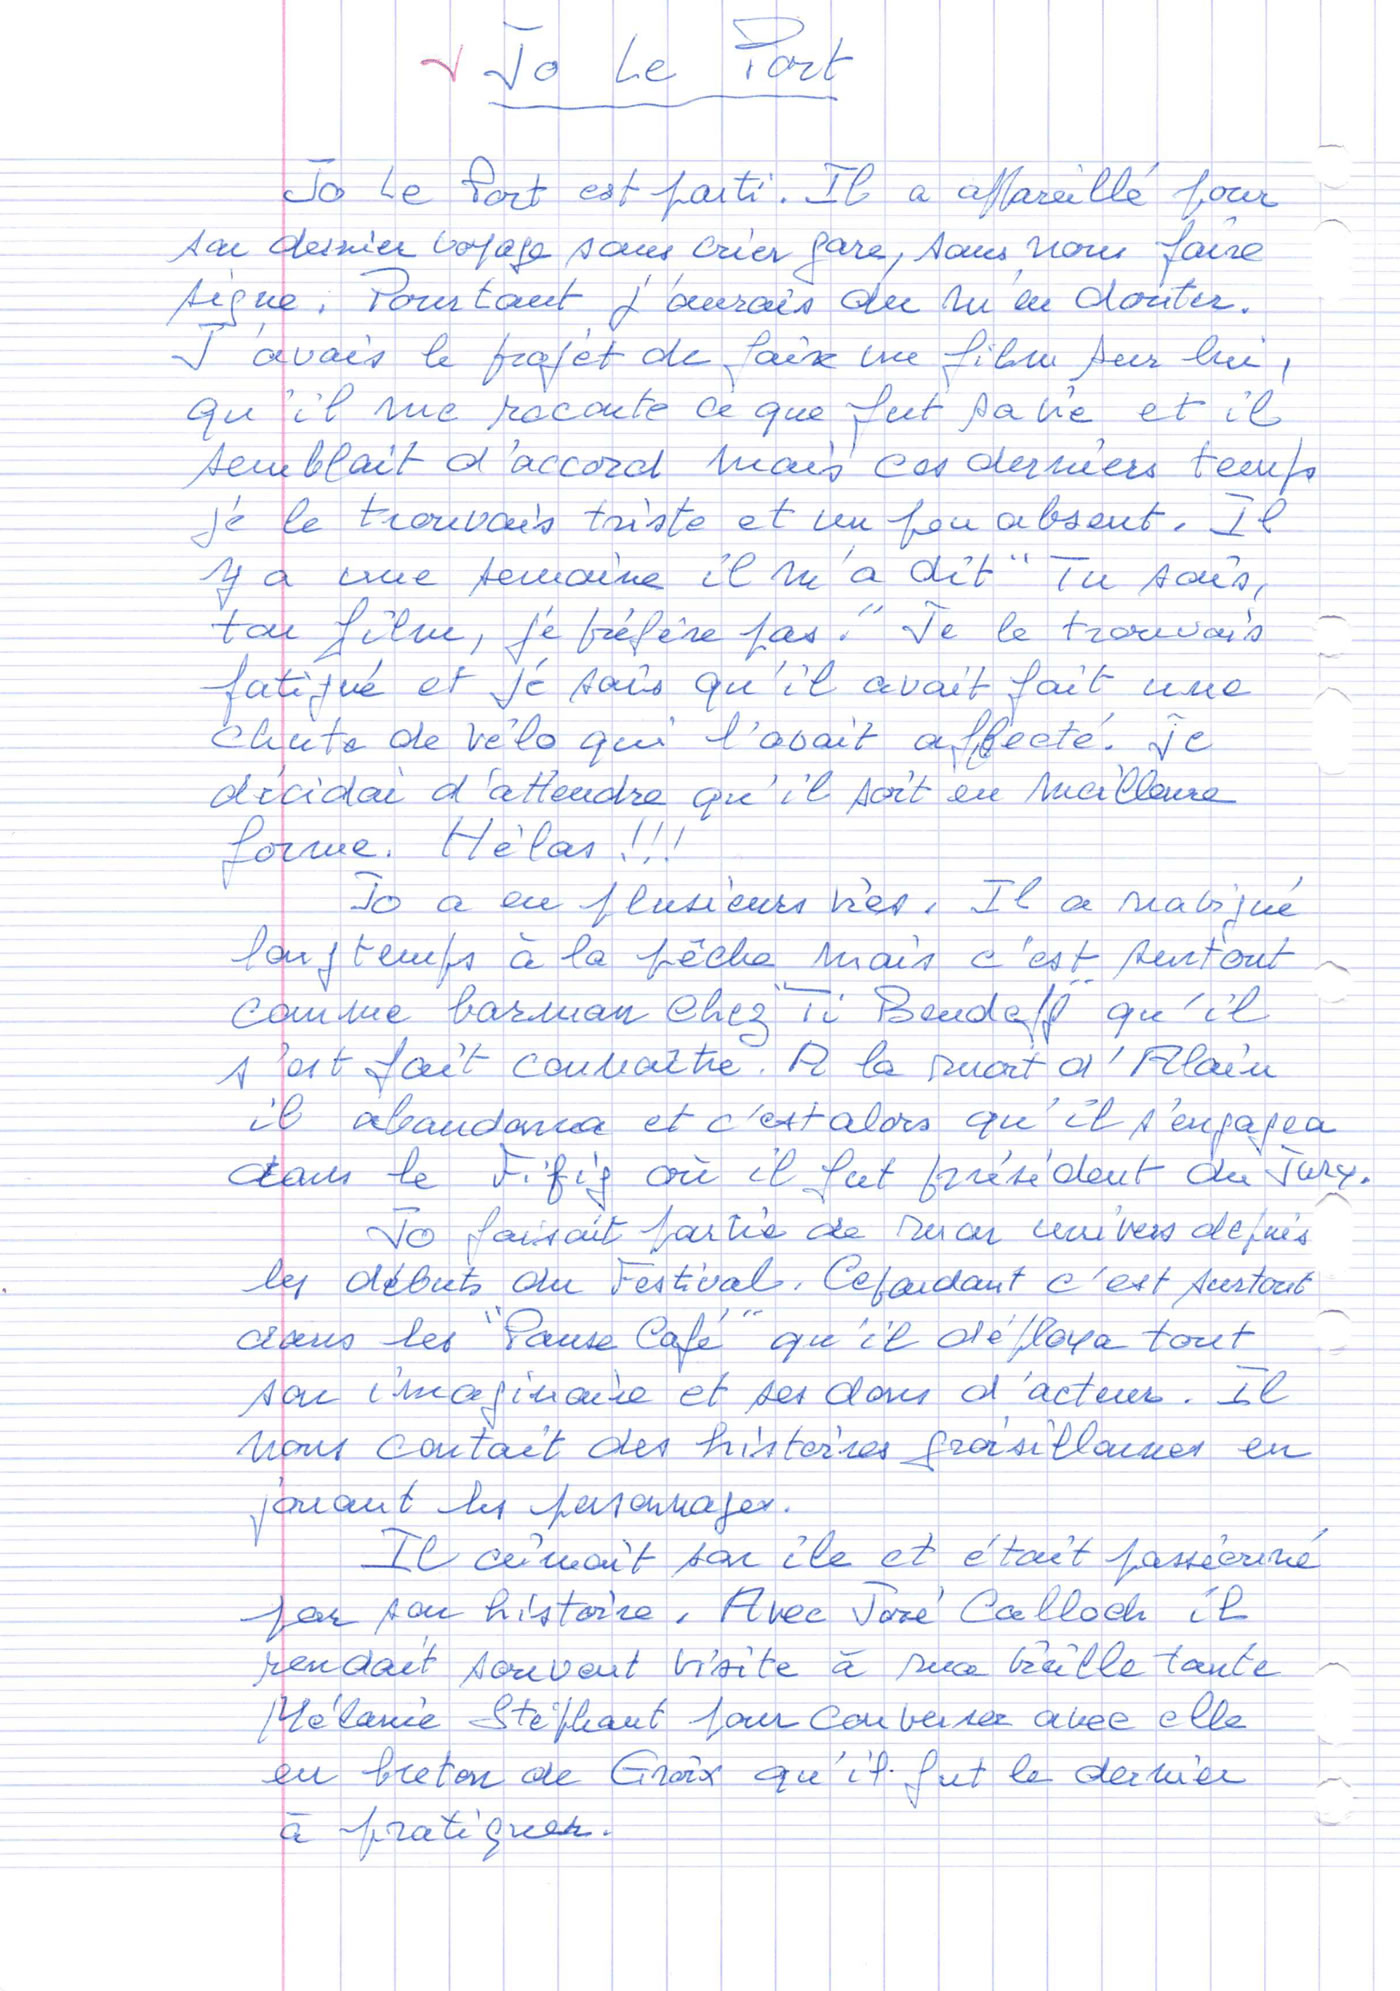 Jo Le Port
Jo Le Port est parti. Il a appareillé pour
son dernier voyage sans crier gare, sans nous faire
signe. Pourtant j'aurais du m'en douter.
J'avais le projet de faire un film sur lui,
qu'il me raconte ce que fut sa vie et il
semblait d'accord mais ces derniers temps
je le trouvais triste et un peu absent. Il
y a une semaine il m'a dit " Tu sais,
ton film, je préfère pas." Je le trouvais
fatigué et je sais qu'il avait fait une
chute de vélo qui l'avait affecté. Je
décidai d'attendre qu'il soit en meilleure
forme. Hélas !!!
Jo a eu plusieurs vies. Il a navigué
longtemps à la pêche mais c'est surtout
comme barman chez "Ti Beudeff" qu'il
s'est fait connaître. A la mort d'Alain
il abandonna et c'est alors qu'il s'engagea
dans le Fifig où il fut président du Jury.
Jo faisait partie de mon univers depuis
les débuts du Festival. Cependant c'est surtout
dans les "Pause Café" qu'il déploya tout
son imaginaire et ses dons d'acteur. Il
nous contait des histoires groisillonnes en
jouant les personnages.
Il aimait son île et était passionné
par son histoire. Avec José Calloch il
rendait souvent visite à ma vieille tante
Mélanie Stéphant pour converser avec elle
en breton de Groix qu'il fut le dernier
à pratiquer.